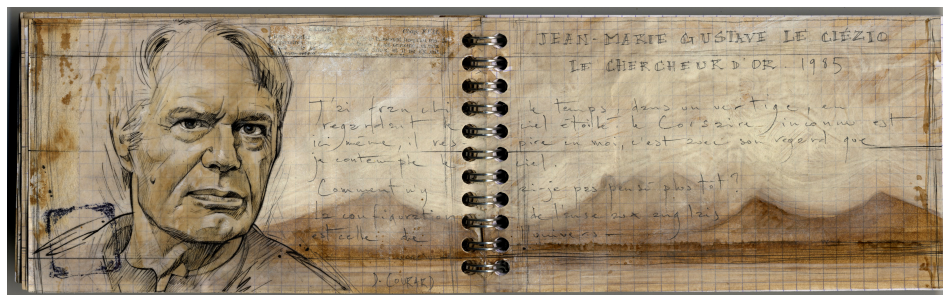 JEAN-MARIE GUSTAVE LE CLÉZIO
LE CHERCHEUR D'OR - 1985
J'ai franchi le temps, dans un vertige, en
regardant le ciel étoilé. Le Corsaire inconnu est
ici même, il respire en moi, c'est avec son regard que
je contemple le ciel.
Comment n'y ai-je pas pensé plus tôt ?
la configuration de l'anse aux anglais
est celle de l'univers -